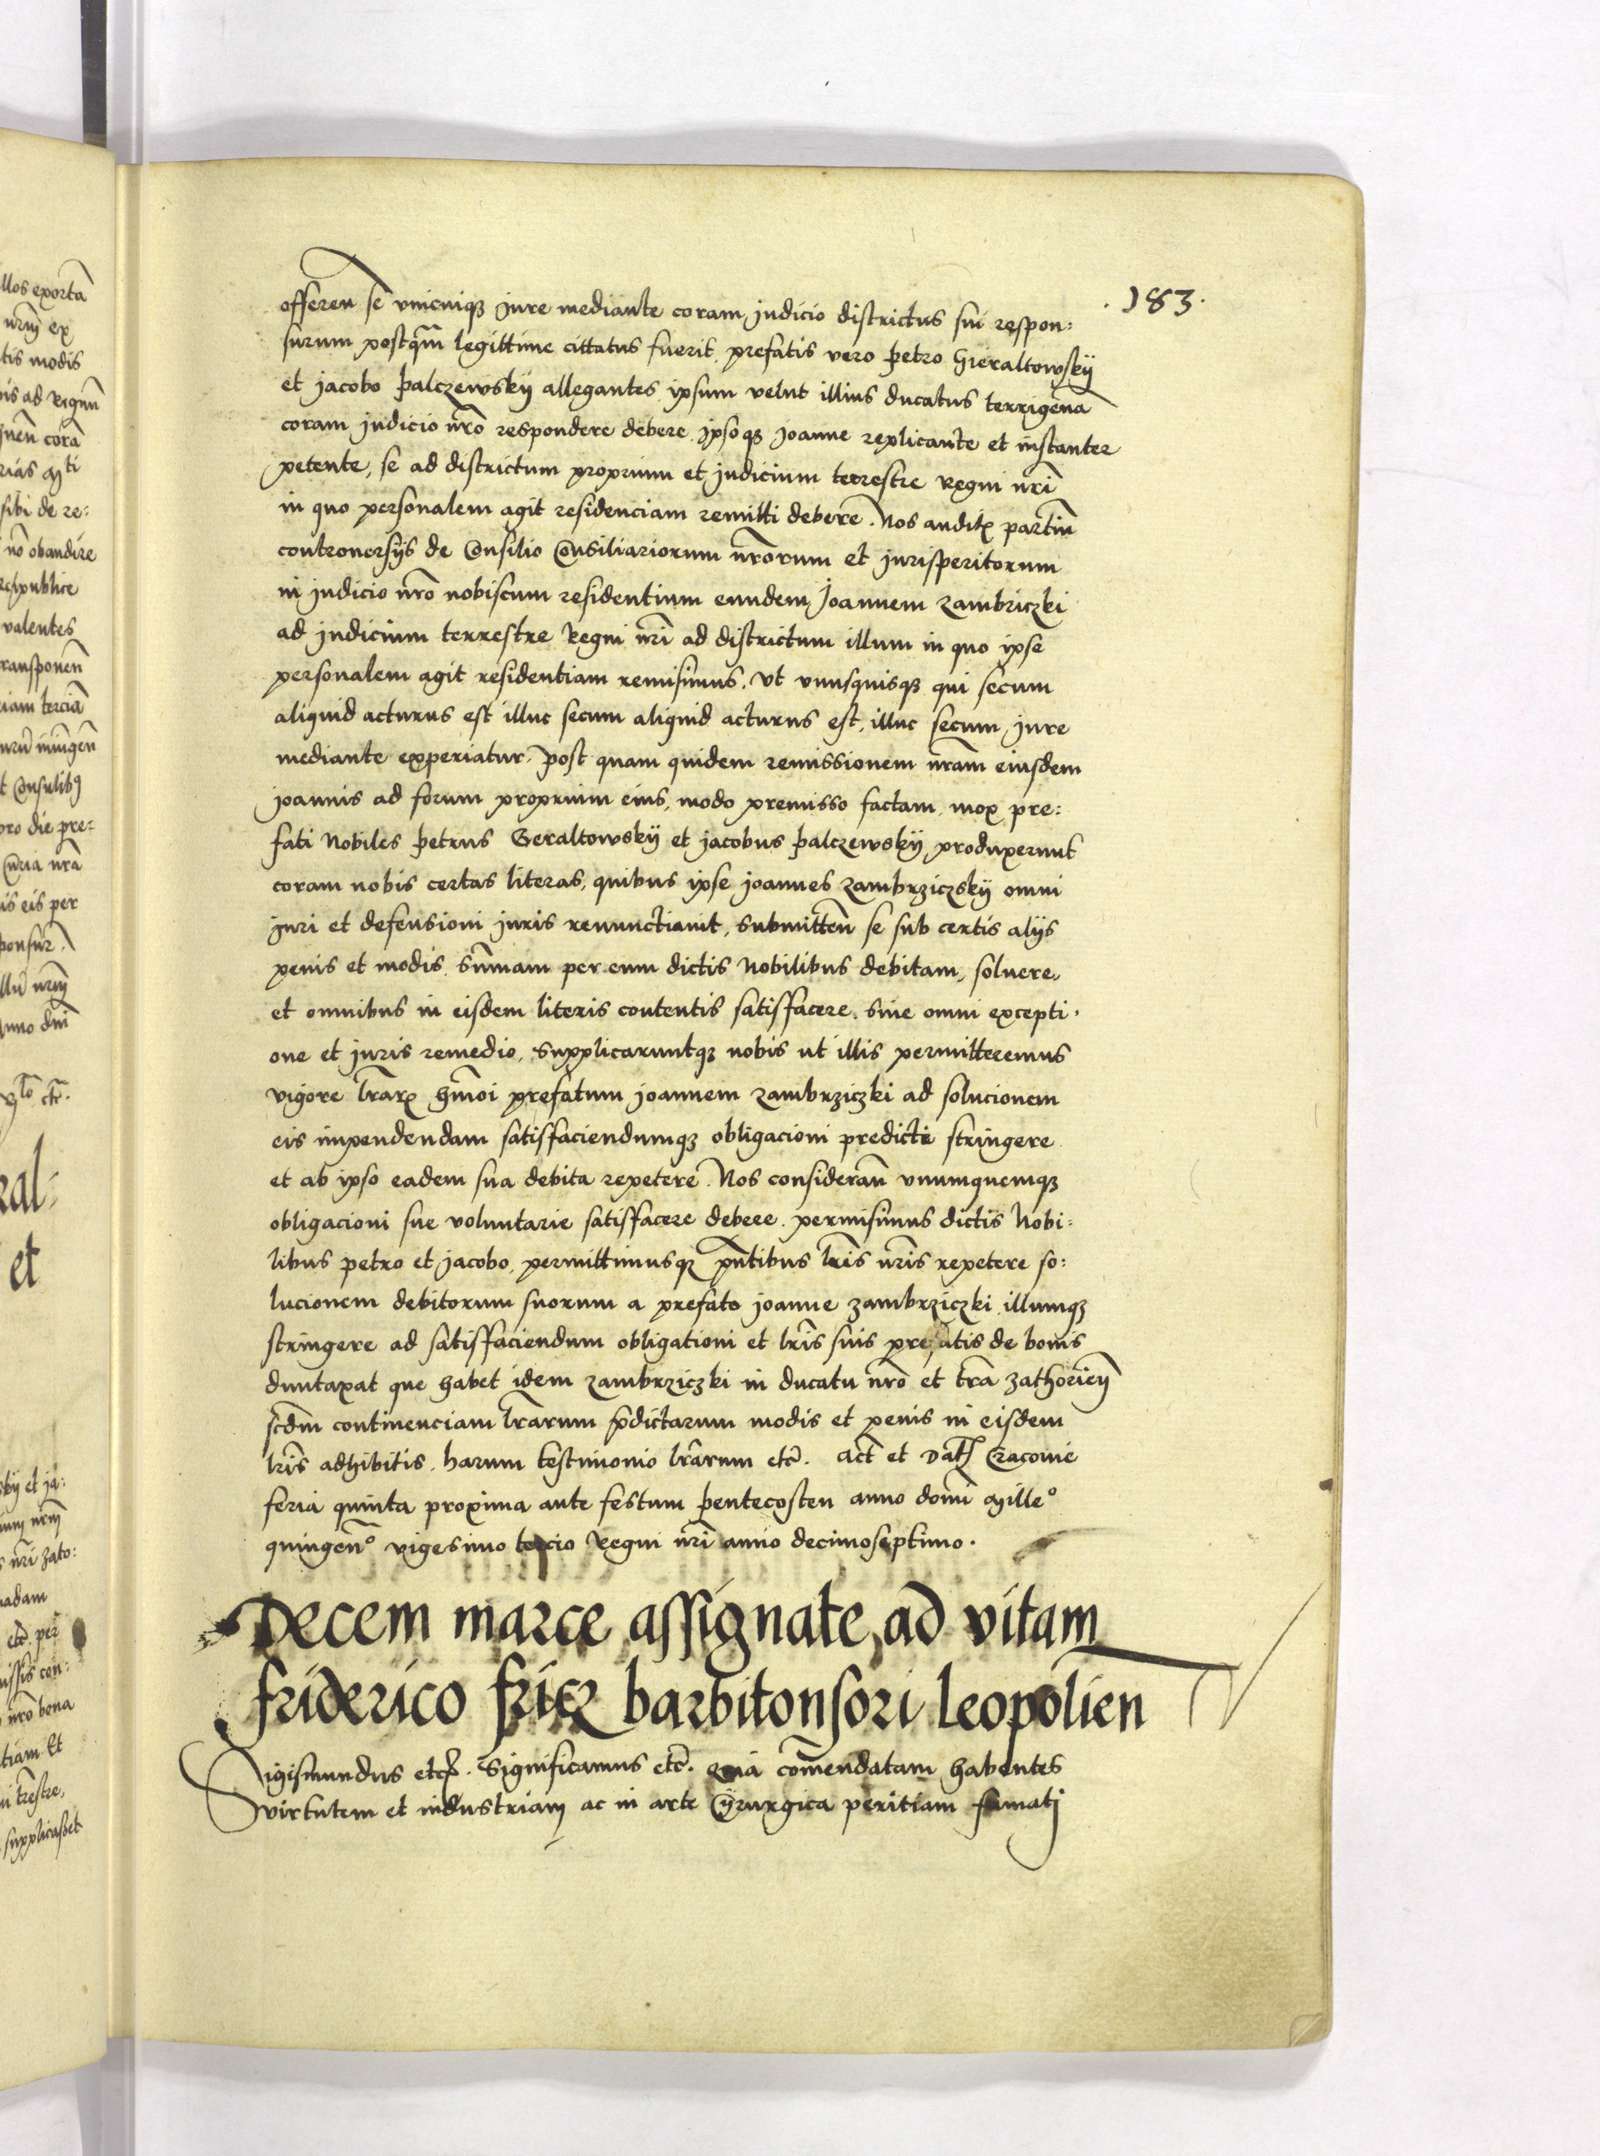 .183.
offeren̄ se vnicuiqꝫ jure mediante coram judicio districtus sui respon:
surum postq̄m legittime cittatus fuerit, prefatis vero Petro Gieraltowskÿ
et jacobo Palczewskÿ allegantes ipsum velut illius ducatus terrigena
coram judicio nr̄o respondere debere. ipsoqꝫ joanne replicante et instanter
petente, se ad districtum proprium et judicium terrestre Regni nr̄i
in quo personalem agit residenciam remitti debere. Nos auditꝭ partiū
controuersÿs de Consilio Consiliariorum nr̄orum et jurisperitorum
in judicio nr̄o nobiscum residentium eundem Joannem Zambriczki
ad judicium terrestre Regni nr̄i ad districtum illum in quo ipse
personalem agit residentiam remisimus. Vt vnusquisqꝫ qui secum
aliquid acturus est illuc secum aliquid acturus est, illuc secum jure
mediante experiatur. Post quam quidem remissionem nr̄am eiusdem
joannis ad forum proprium eius, modo premisso factam, mox pre:
fati Nobiles Petrus Geraltowskÿ et jacobus Palczewskÿ produxerunt
coram nobis certas literas, quibus ipse joannes Zambrziczskÿ omni
juri et defensioni juris renunctiauit, submitten̄ se sub certis alÿs
penis et modis, Sum̄am per eum dictis Nobilibus debitam, soluere,
et omnibus in eisdem literis contentis satisfacere, sine omni excepti:
one et juris remedio, supplicaruntqꝫ nobis ut illis permitteremus
vigore l̄rarꝭ hm̄oi prefatum joannem Zambrziczki ad solucionem
eis impendendam satisfaciendumqꝫ obligacioni predicte stringere
et ab ipso eadem sua debita repetere. Nos consideran̄ vnumquemqꝫ
obligacioni sue voluntarie satisfacere debere. permisimus dictis Nobi:
libus petro et jacobo, permittimusqꝫ pn̄tibus lr̄is nr̄is repetere so:
lucionem debitorum suorum a prefato joanne Zambrziczki, illumqꝫ
stringere ad satisfaciendum obligationi et lr̄is suis prefatis de bonis
duntaxat que habet idem Zambrziczki in ducatu nr̄o et tr̄a Zathorien̄
scd̄m continenciam lr̄arum p̄dictarum modis et penis in eisdem
lr̄is adhibitis. harum testimonio lr̄arum etc̄. Act̄ et Dat̄ Cracouie
feria quinta proxima ante festum Pentecosten anno domī Mille°
quingen̄° vigesimo tercio Regni nr̄i anno decimoseptimo.
Decem marce assignate ad vitam
friderico fricz barbitonsori leopolien̄
Sigismundus etc̄. Significamus etc̄. quia com̄endatam habentes
virtutem et industriam ac in arte Cÿrurgica peritiam famati